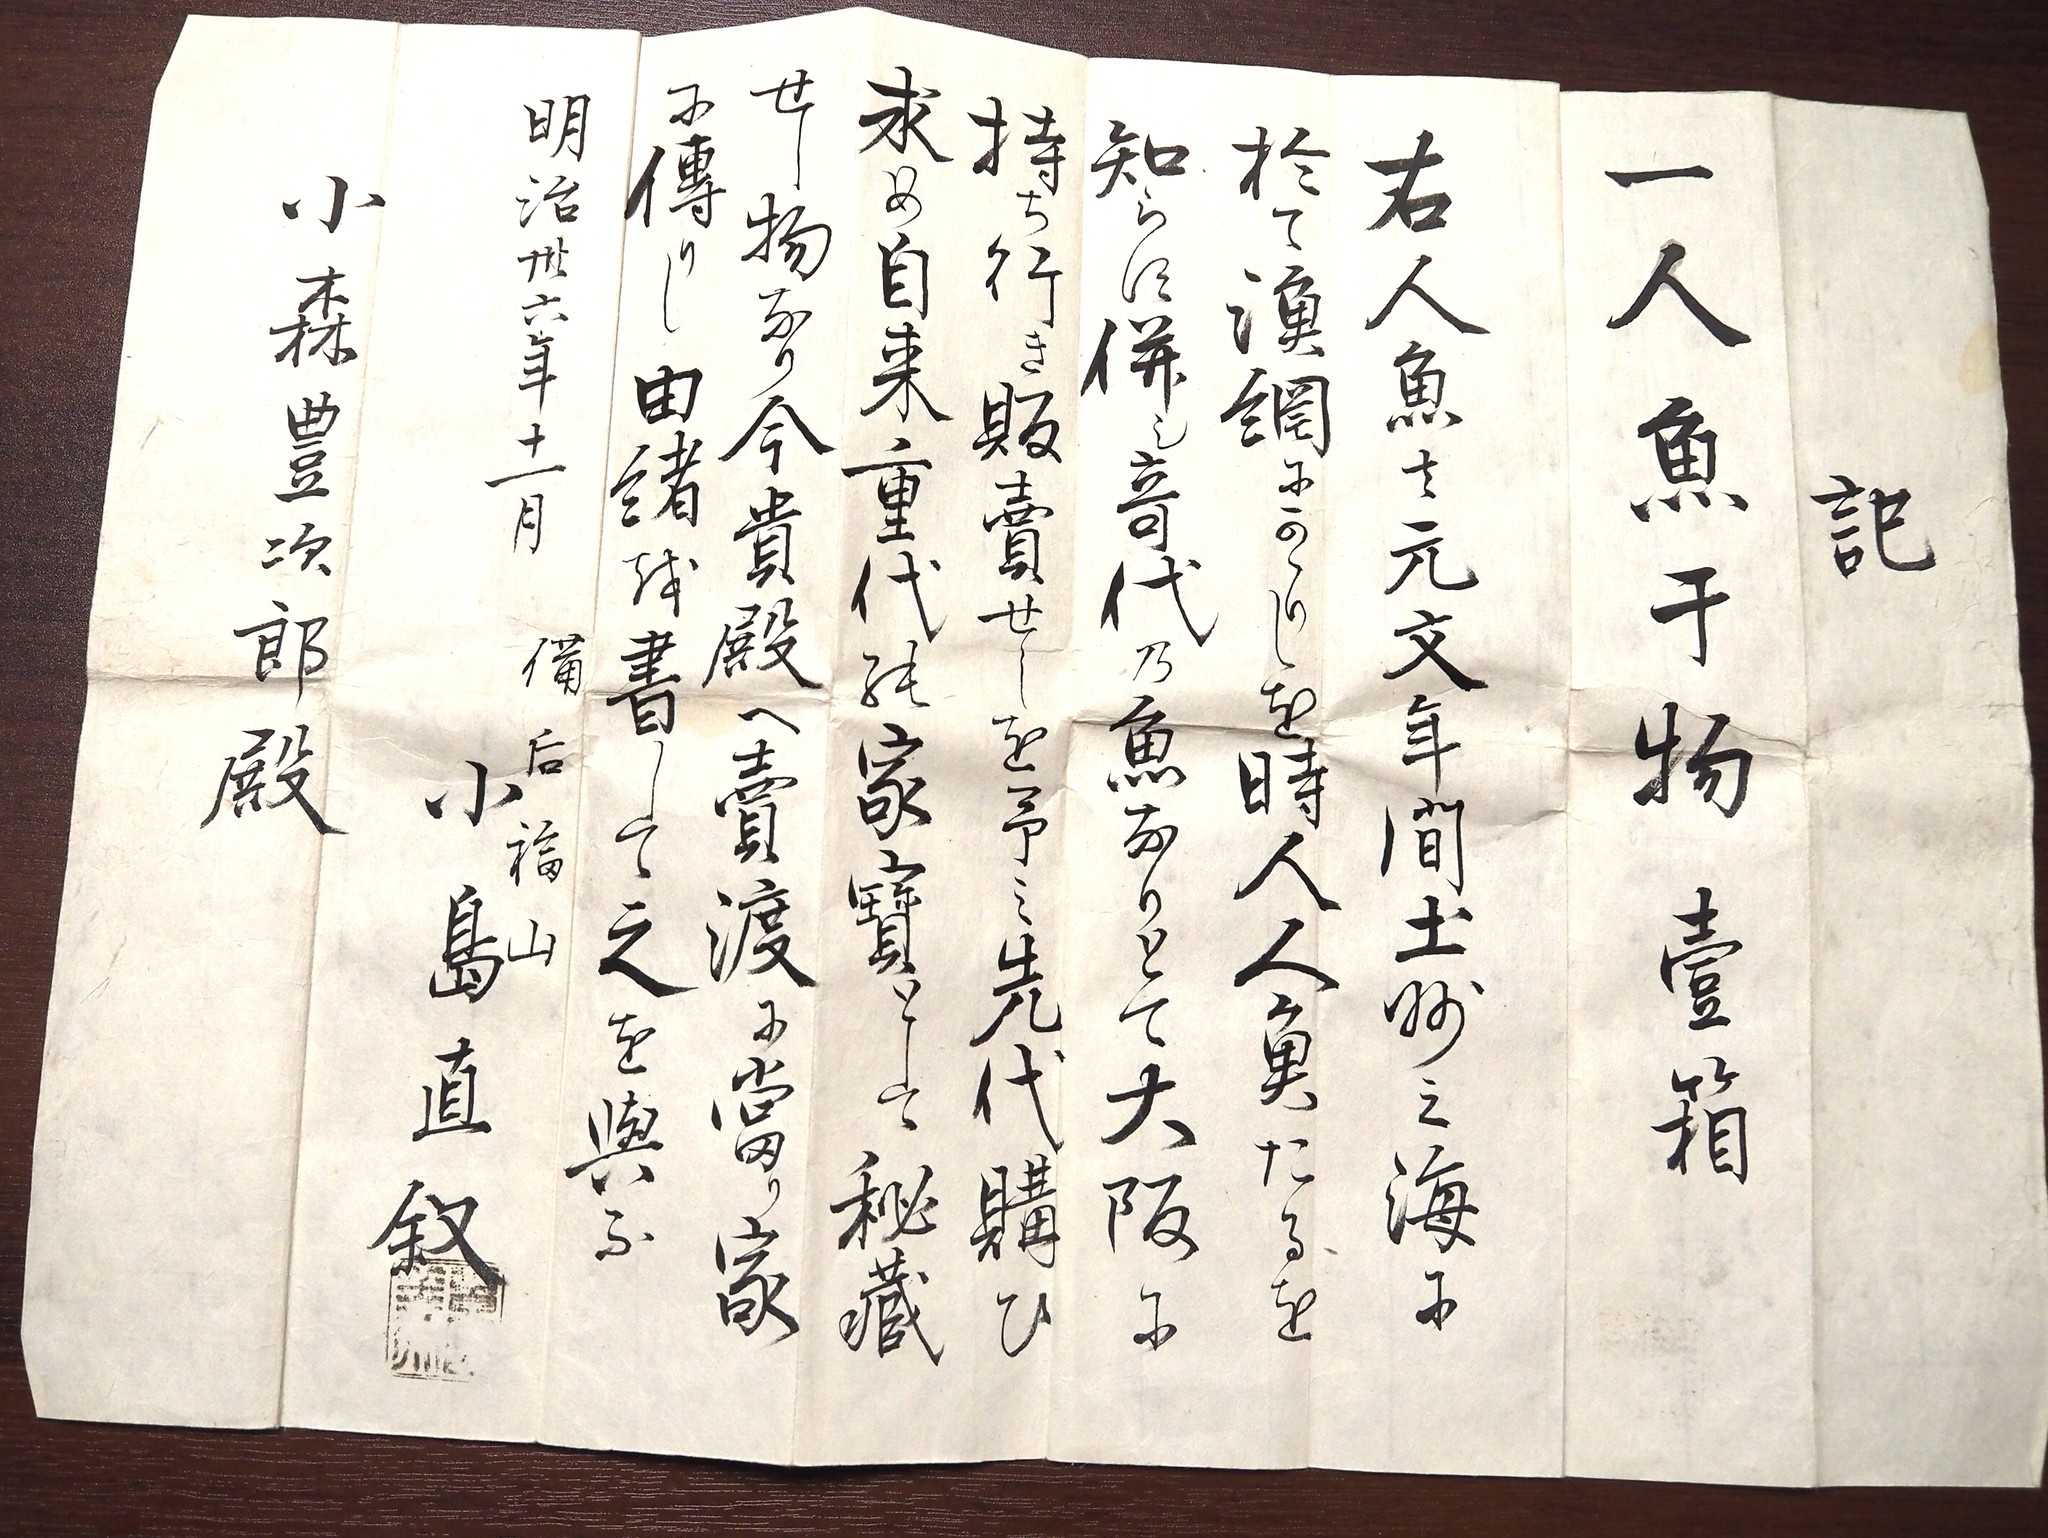 記
一人魚干物 壹箱
右人魚は元文年間土州之海に
於て漁網にかゝりしを時人人魚たるを
知らす併し奇代乃魚なりとて大阪に
持ち行き販賣せしを予之先代購ひ
求め自来重代の家寳として秘藏
せし物なり今貴殿へ賣渡に當り家
に傳りし由緒を書して之を與ふ
明治卅六年十一月
備后福山
小島直叙
小森豊次郎殿